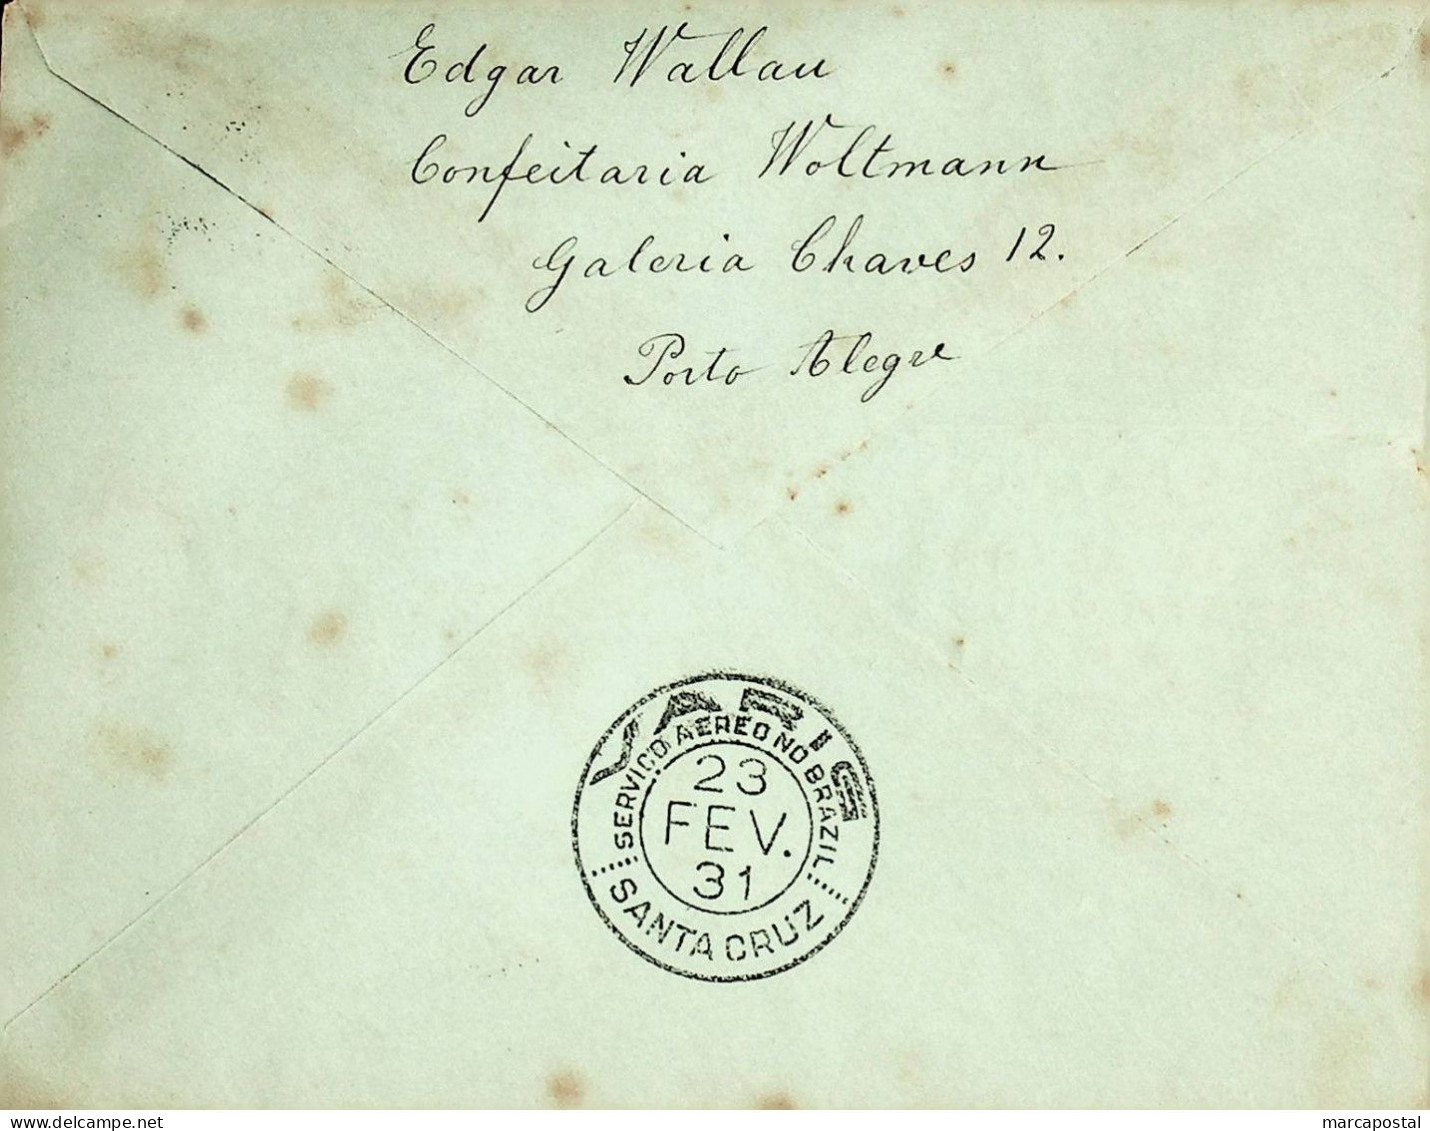 Edgar Wallau
Confeitaria Woltmann
Galeria Chaves 12.
Porto Alegre
VARIG
SERVIÇO AEREO NO BRAZIL
23
FEV.
31
SANTA CRUZ
delcampe.net
marcapostal